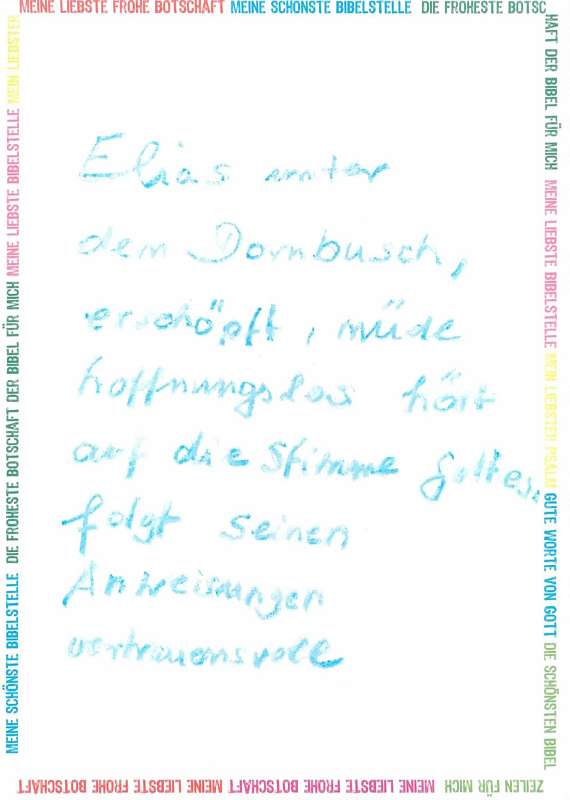 MEINE LIEBSTE FROHE BOTSCHAFT MEINE SCHÖNSTE BIBELSTELLE DIE FROHESTE BOTSC
HAFT DER BIBEL FÜR MICH MEINE LIEBSTE BIBELSTELLE MEIN LIEBSTER PSALM GUTE WORTE VON GOTT DIE SCHÖNSTEN BIBEL
ZEILEN FÜR MICH MEINE LIEBSTE FROHE BOTSCHAFT MEINE LIEBSTE FROHE BOTSCHAFT
MEINE SCHÖNSTE BIBELSTELLE DIE FROHESTE BOTSCHAFT DER BIBEL FÜR MICH MEINE LIEBSTE BIBELSTELLE MEIN LIEBSTER
Elias unter
dem Dornbusch,
erschöpft, müde
hoffnungslos hört
auf die Stimme Gottes,
folgt seinen
Anweisungen
vertrauensvoll